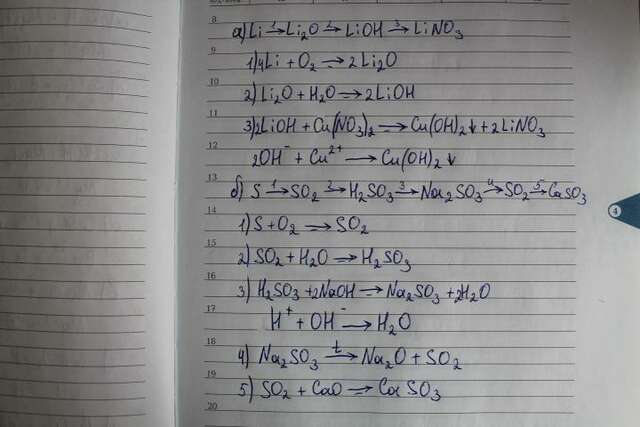 8
а) Li →1 Li₂O →2 LiOH →3 LiNO₃
9
1) 4Li + O₂ → 2Li₂O
10
2) Li₂O + H₂O → 2LiOH
11
3) 2LiOH + Cu(NO₃)₂ → Cu(OH)₂↓ + 2LiNO₃
12
2OH⁻ + Cu²⁺ → Cu(OH)₂↓
13
б) S →1 SO₂ →2 H₂SO₃ →3 Na₂SO₃ →4 SO₂ →5 CaSO₃
14
1) S + O₂ → SO₂
15
2) SO₂ + H₂O → H₂SO₃
16
3) H₂SO₃ + 2NaOH → Na₂SO₃ + 2H₂O
17
H⁺ + OH⁻ → H₂O
18
4) Na₂SO₃ →t Na₂O + SO₂
19
5) SO₂ + CaO → CaSO₃
20